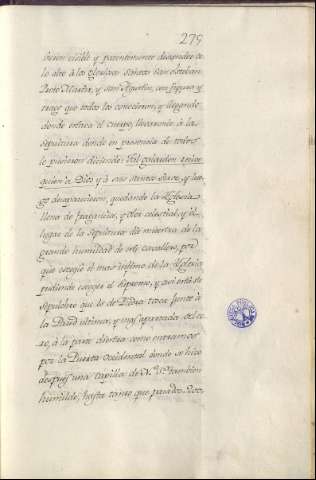 279
vieron visible y patentemente descender de
lo alto à los gloriosos Santos San Esteban
Proto Martir, y San Agustin, con figura y
trage que todos los conocieron; y llegando
donde estaba el cuerpo, llevaronle à la
sepultura donde en presencia de todos
le pusieron diciendo: tàl galardon recibe
quien à Dios y à sus Santos sirve, y lue-
go desaparecieron, quedando la Yglesia
llena de fragancia, y olor celestial, y el
lugar de la sepultura dà muestra de la
grande humildad de este cavallero, por
que escogio el mas infimo de la Yglesia
pudiendo escoger el supremo, y asi està su
sepulcro que es de Piedra tosca junto à
la Pared ultima, y mas apartada del co-
ro, à la parte diestra como entramos
por la Puerta occidental donde se hizo
despues una capilla de N.ª S.ª tambien
humilde, hasta tanto que pasados 200.